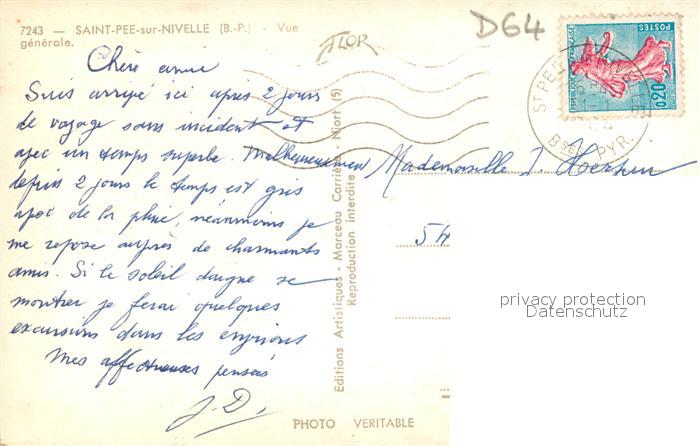 7243 — SAINT-PEE-sur-NIVELLE (B.-P.) - Vue
générale.
FLOR
D64
REPUBLIQUE FRANÇAISE
POSTES
0,20
ST PEE NIVELLE
Bses PYR.
Chère amie
Suis arrivé ici après 2 jours
de voyage sans incident et
avec un temps superbe. Malheureusement
depuis 2 jours le temps est gris
avec de la pluie, néanmoins je
me repose auprès de charmants
amis. Si le soleil daigne se
montrer je ferai quelques
excursions dans les environs
Mes affectueuses pensées
J. D.
Editions Artistiques - Marceau Carrière - Niort (5)
Reproduction interdite
Mademoiselle J.
54
privacy protection
Datenschutz
PHOTO VERITABLE